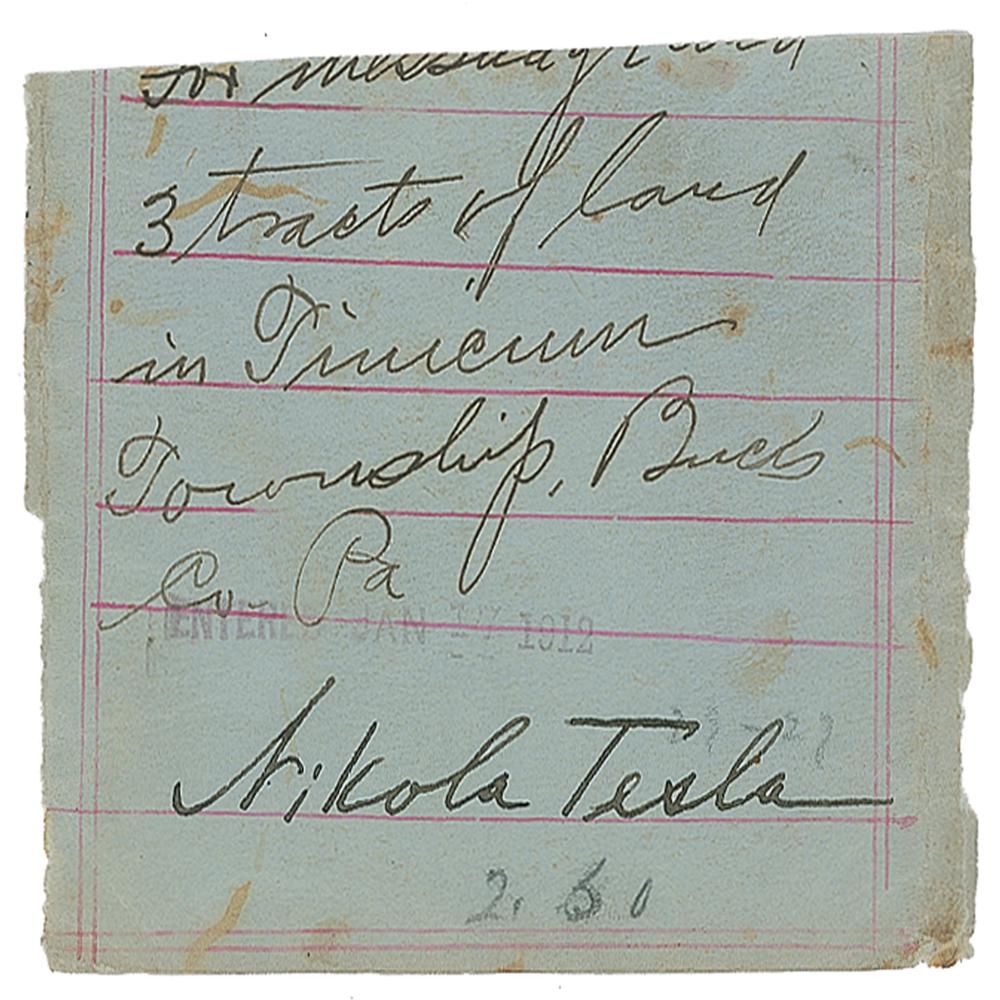 for message and
3 tracts of land
in Tinicum
Township, Bucks
Co Pa
ENTERED JAN 17 1912
Nikola Tesla
2.60